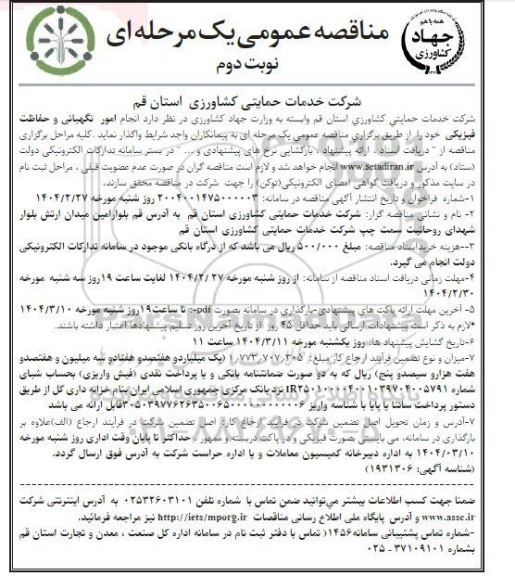 همه با هم
جهاد
کشاورزی
مناقصه عمومی یک مرحله ای
نوبت دوم
شرکت خدمات حمایتی کشاورزی استان قم
شرکت خدمات حمایتي کشاورزي استان قم وابسته به وزارت جهاد کشاورزی در نظر دارد انجام امور نگهبانی و حفاظت
فیزیکی خود را از طریق برگزاری مناقصه عمومی یک مرحله ای به پیمانکاران واجد شرایط واگذار نماید . کلیه مراحل برگزاری
مناقصه از " دریافت اسناد ، ارائه پیشنهاد ، بازگشایی نرخ های پیشنهادی و ... " در بستر سامانه تدارکات الکترونیکی دولت
(ستاد) به آدرس www.setadiran.ir انجام خواهد شد و لازم است مناقصه گران در صورت عدم عضویت قبلی ، مراحل ثبت نام
در سایت مذکور و دریافت گواهی امضای الکترونیکی(توکن) را جهت شرکت در مناقصه محقق سازند.
۱-شماره فراخوان و تاریخ انتشار آگهی مناقصه در سامانه: ۲۰۰۴۰۰۱۴۷۵۰۰۰۰۰۳ روز شنبه مورخه ۱۴۰۴/۲/۲۷
۲- نام و نشانی مناقصه گزار: شرکت خدمات حمایتی کشاورزی استان قم به آدرس قم بلوارامین میدان ارتش بلوار
شهدای روحانیت سمت چپ شرکت خدمات حمایتی کشاورزی استان قم
۳-هزینه خرید اسناد مناقصه: مبلغ ۵۰۰/۰۰۰ ریال می باشد که از درگاه بانکی موجود در سامانه تدارکات الکترونیکی
دولت انجام می گیرد.
۴-مهلت زمانی دریافت اسناد مناقصه از سامانه: از روز شنبه مورخه ۱۴۰۴/۲/۲۷ لغایت ساعت ۱۹ روز سه شنبه مورخه
۱۴۰۴/۲/۳۰
۵- آخرین مهلت ارائه پاکت های پیشنهادی-بارگذاری در سامانه بصورت pdf-: تا ساعت ۱۹ روز شنبه مورخه ۱۴۰۴/۳/۱۰
*لازم به ذکر است پیشنهادات ارسالی باید حداقل ۴۵ روز از تاریخ آخرین روز تسلیم پیشنهادها اعتبار داشته باشند.
۶-تاریخ گشایش پیشنهاد ها: روز یکشنبه مورخه ۱۴۰۴/۳/۱۱ ساعت ۱۱
۷-میزان و نوع تضمین فرآیند ارجاع کار مبلغ: ۱/۷۷۳/۷۰۷/۳۰۵ (یک میلیاردو هفتصدو هفتادو سه میلیون و هفتصدو
هفت هزارو سیصدو پنج) ریال که به دو صورت ضمانتنامه بانکی و یا پرداخت نقدی (فیش واریزی) بحساب شبای
شماره نزد بانک مرکزی جمهوری اسلامی ایران بنام خزانه داری کل از طریق
دستور پرداخت ساتنا یا پایا با شناسه واریز قابل ارائه می باشد
۷-آدرس و زمان تحویل اصل تضمین شرکت در فرآیند ارجاع کار: اصل تضمین شرکت در فرآیند ارجاع (الف)علاوه بر
بارگذاری در سامانه، می بایستی بصورت فیزیکی و در پاکت دربسته و ممهور ، حداکثر تا پایان وقت اداری روز شنبه مورخه
۱۴۰۴/۰۳/۱۰ به اداره دبیرخانه کمیسیون معاملات و یا اداره حراست شرکت به آدرس فوق ارسال گردد.
(شناسه آگهی: ۱۹۳۱۳۰۶)
ضمنا جهت کسب اطلاعات بیشتر می‌توانید ضمن تماس با شماره تلفن ۰۲۵۳۲۶۰۳۱۰۱ به آدرس اینترنتی شرکت
www.assc.ir و آدرس پایگاه ملی اطلاع رسانی مناقصات http://iets/mporg.ir نیز مراجعه فرمائید.
-شماره تماس پشتیبانی سامانه۱۴۵۶( تماس با دفتر ثبت نام در سامانه اداره کل صنعت ، معدن و تجارت استان قم
بشماره ۳۷۱۰۹۱۰۱ - ۰۲۵